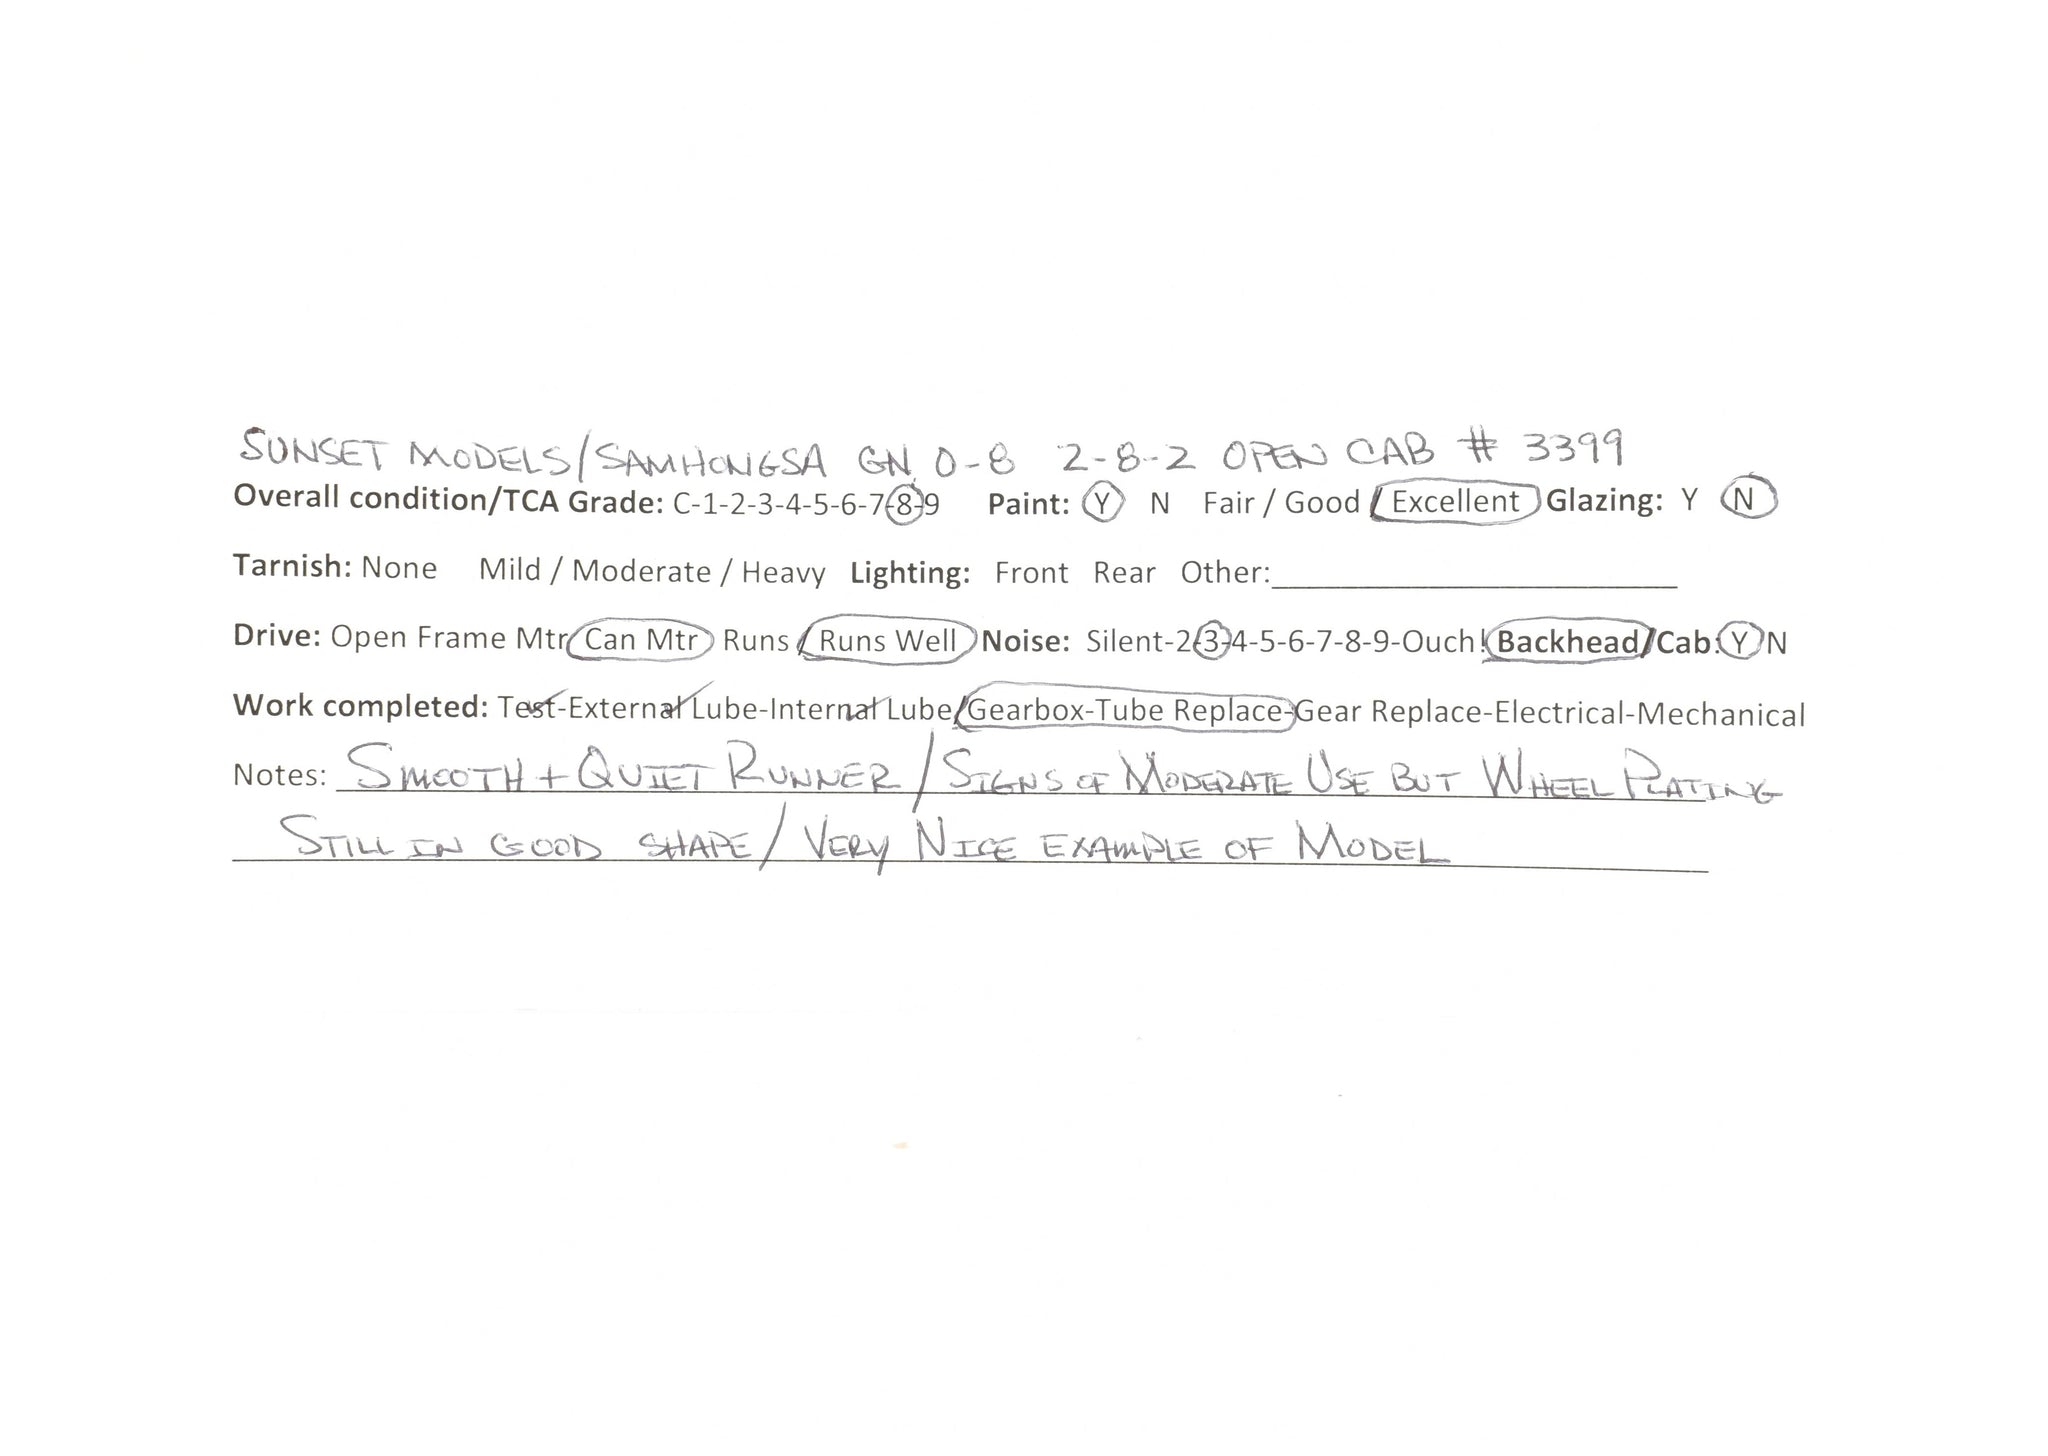 SUNSET MODELS/SAMHONGSA GN O-8 2-8-2 OPEN CAB # 3399
Overall condition/TCA Grade: C-1-2-3-4-5-6-7-8-9 Paint: Y N Fair / Good / Excellent Glazing: Y N
Tarnish: None Mild / Moderate / Heavy Lighting: Front Rear Other:
Drive: Open Frame Mtr/Can Mtr Runs/Runs Well Noise: Silent-2-3-4-5-6-7-8-9-Ouch! Backhead/Cab: Y N
Work completed: Test-External Lube-Internal Lube/Gearbox-Tube Replace-Gear Replace-Electrical-Mechanical
Notes: SMOOTH + QUIET RUNNER / SIGNS OF MODERATE USE BUT WHEEL PLATING
STILL IN GOOD SHAPE / VERY NICE EXAMPLE OF MODEL